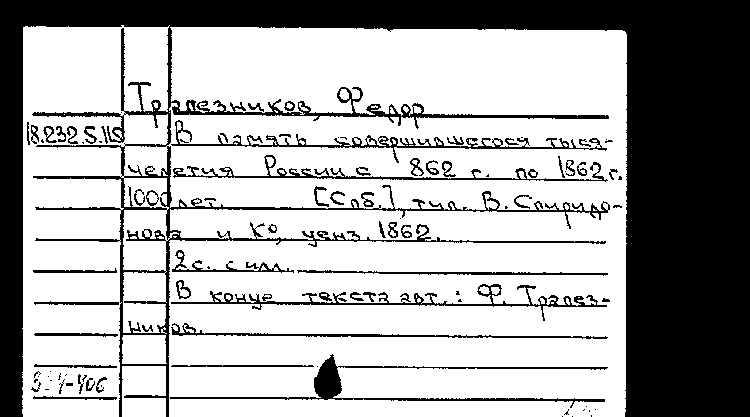 Трапезников, Федор
18.232.5.115 В память совершившегося тыся-
челетия России с 862 г. по 1862 г.
1000 лет. [Спб.], тип. В. Спиридо-
нова и К°, ценз. 1862.
2 с. с илл.
В конце текста авт.: Ф. Трапез-
ников.